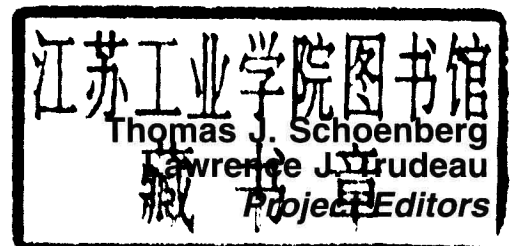 江苏工业学院图书馆
Thomas J. Schoenberg
Lawrence J. Trudeau
藏书章
Project Editors